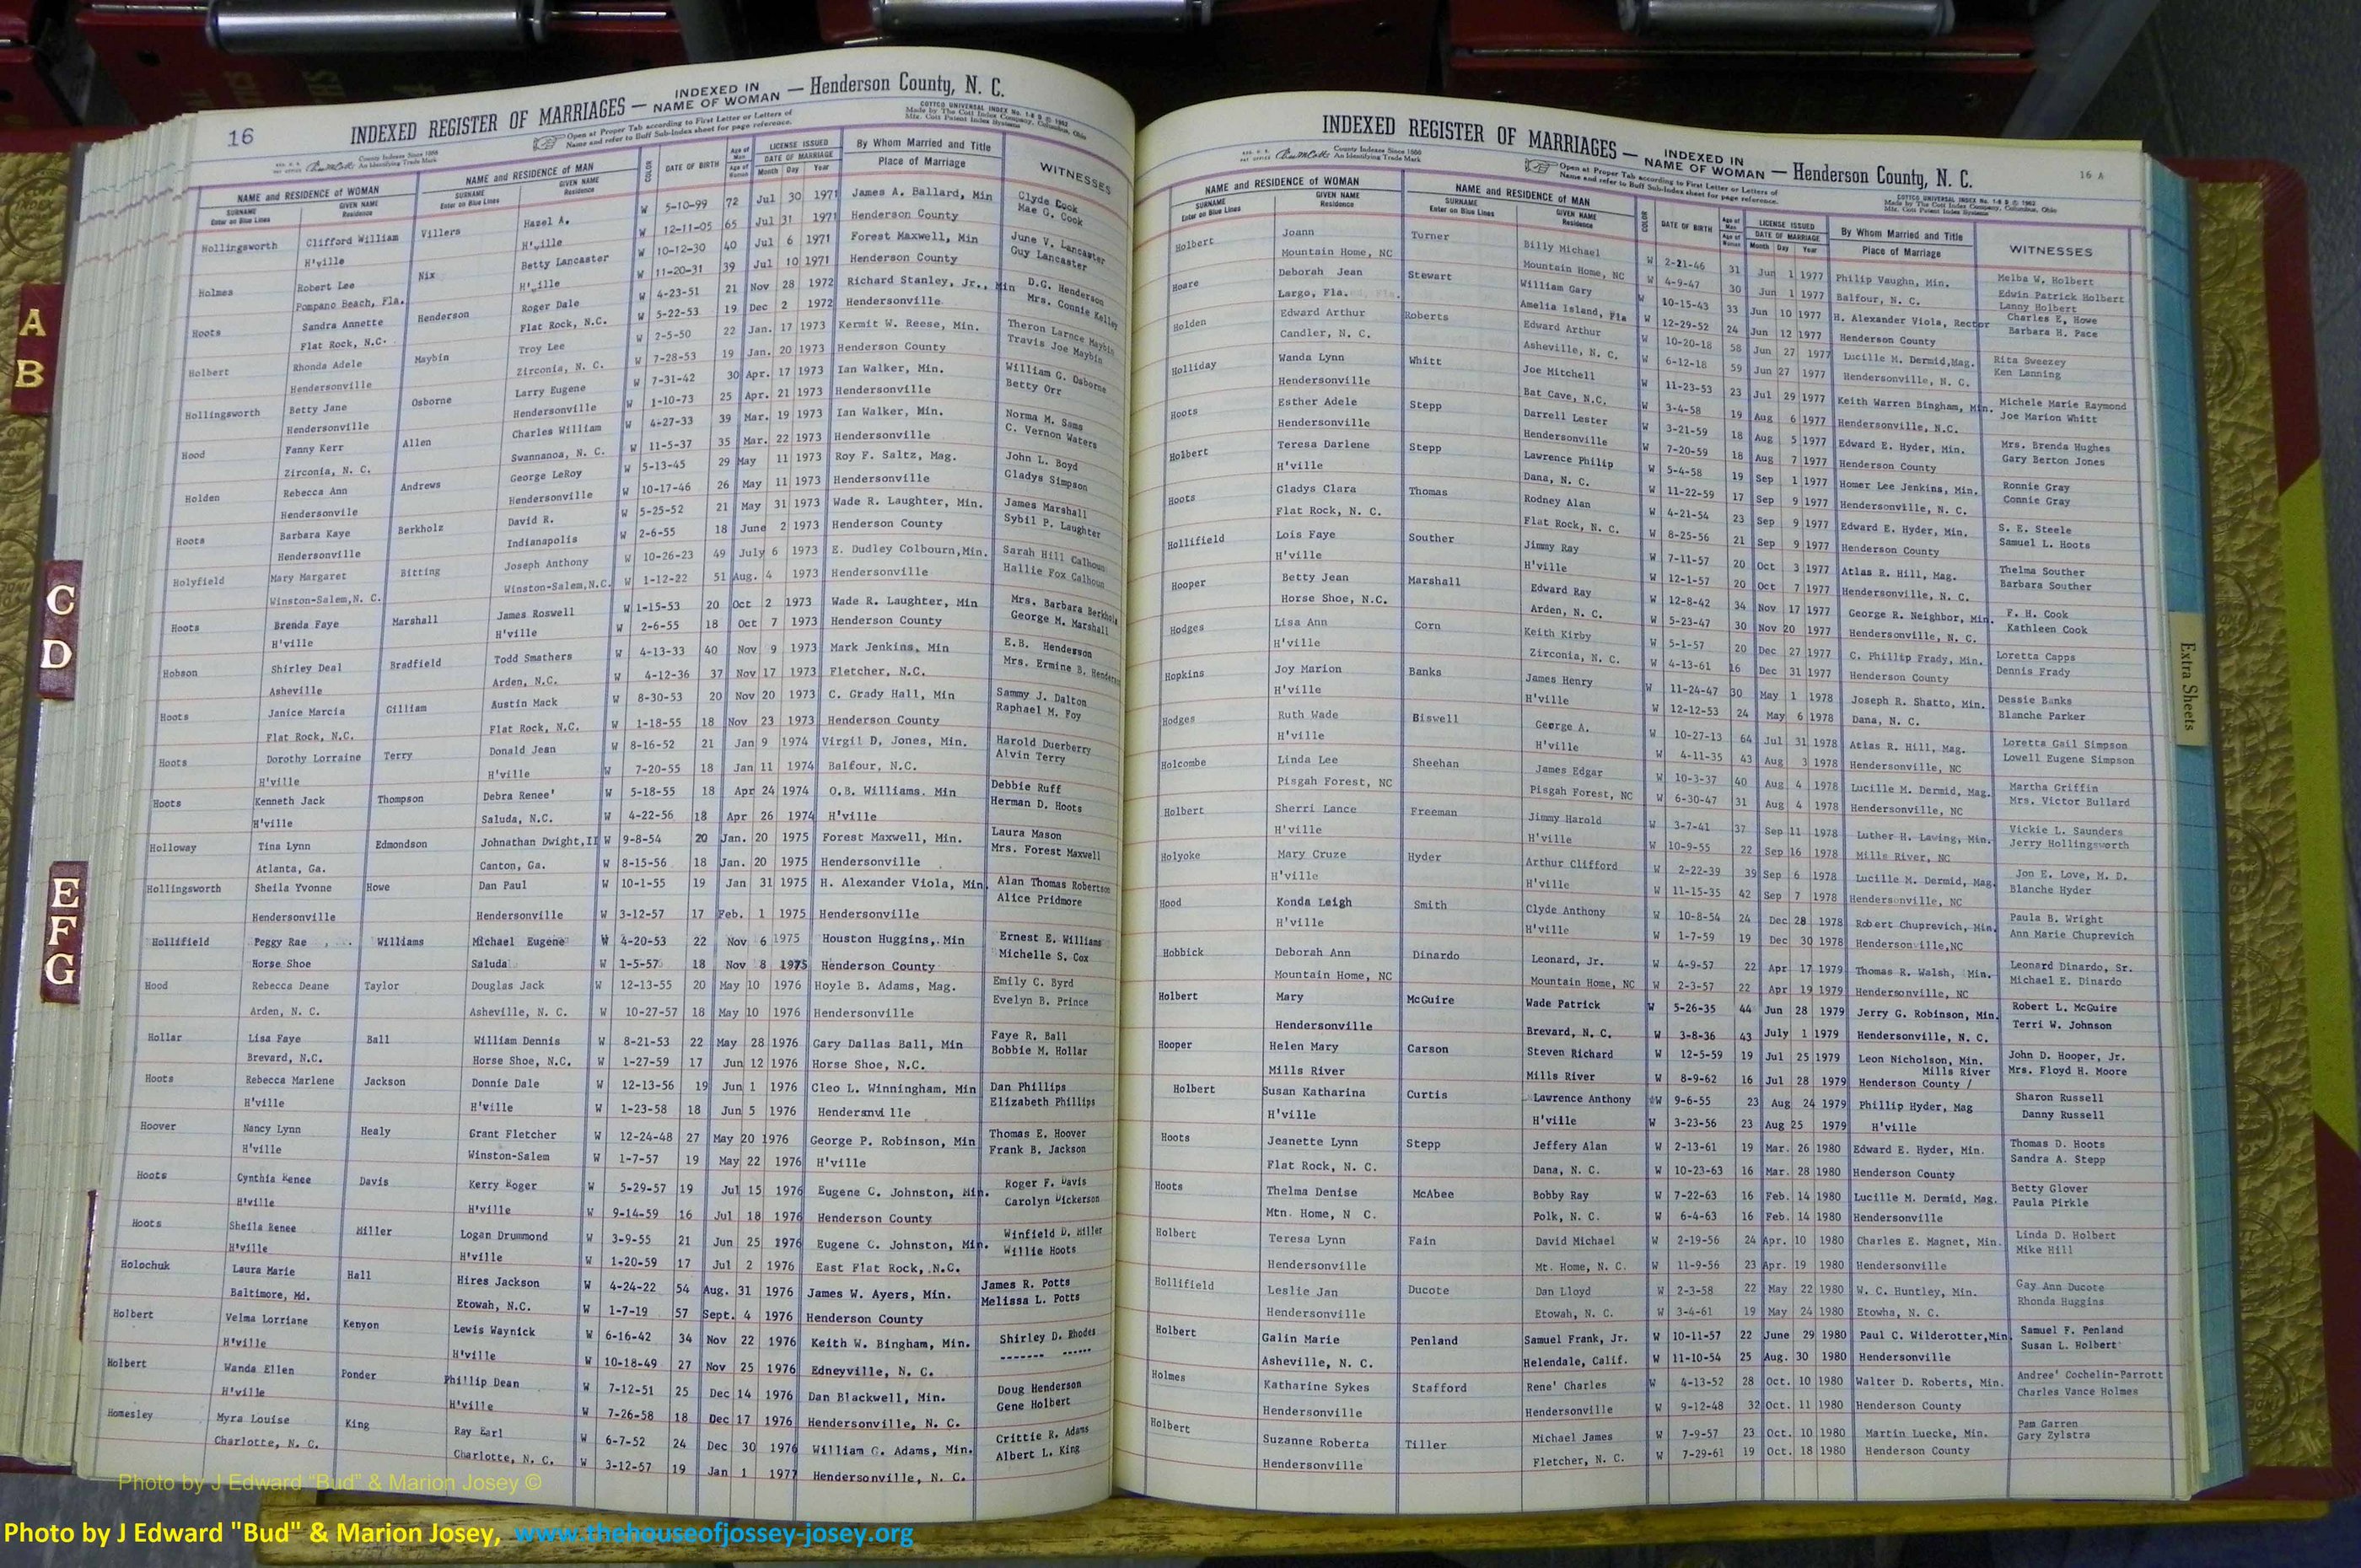 16
INDEXED REGISTER OF MARRIAGES — INDEXED IN NAME OF WOMAN — Henderson County, N. C.
Open at Proper Tab according to First Letter or Letters of
Name and refer to Buff Sub-Index sheet for page reference.
COTTCO UNIVERSAL INDEX
Made by The Cott Index Company, Columbus, Ohio
County Indexes Since 1888
An Identifying Trade Mark
NAME and RESIDENCE OF WOMAN NAME and RESIDENCE OF MAN COLOR DATE OF BIRTH Age of Man LICENSE ISSUED By Whom Married and Title WITNESSES
SURNAME GIVEN NAME SURNAME GIVEN NAME Age of Woman DATE OF MARRIAGE Place of Marriage
Enter on Blue Lines Residence Enter on Blue Lines Residence Month Day Year
Hollingsworth Clifford William Villers Hazel A. W 5-10-99 72 Jul 30 1971 James A. Ballard, Min Clyde Cook
H'ville H'ville W 12-11-05 65 Jul 31 1971 Henderson County Mae G. Cook
Holmes Robert Lee Nix Betty Lancaster W 10-12-30 40 Jul 6 1971 Forest Maxwell, Min June V. Lancaster
Pompano Beach, Fla. H'ville W 11-20-31 39 Jul 10 1971 Henderson County Guy Lancaster
Hoots Sandra Annette Henderson Roger Dale W 4-23-51 21 Nov 28 1972 Richard Stanley, Jr., Min D.G. Henderson
Flat Rock, N.C. Flat Rock, N.C. W 5-22-53 19 Dec 2 1972 Hendersonville Mrs. Connie Kelley
Holbert Rhonda Adele Maybin Troy Lee W 2-5-50 22 Jan. 17 1973 Kermit W. Reese, Min. Theron Larnce Maybin
Hendersonville Zirconia, N. C. W 7-28-53 19 Jan. 20 1973 Henderson County Travis Joe Maybin
Hollingsworth Betty Jane Osborne Larry Eugene W 7-31-42 30 Apr. 17 1973 Ian Walker, Min. William G. Osborne
Hendersonville Hendersonville W 1-10-73 25 Apr. 21 1973 Hendersonville Betty Orr
Hood Fanny Kerr Allen Charles William W 4-27-33 39 Mar. 19 1973 Ian Walker, Min. Norma M. Sams
Zirconia, N. C. Swannanoa, N. C. W 11-5-37 35 Mar. 22 1973 Hendersonville C. Vernon Waters
Holden Rebecca Ann Andrews George LeRoy W 5-13-45 29 May 11 1973 Roy F. Saltz, Mag. John L. Boyd
Hendersonvile Hendersonville W 10-17-46 26 May 11 1973 Hendersonville Gladys Simpson
Hoots Barbara Kaye Berkholz David R. W 5-25-52 21 May 31 1973 Wade R. Laughter, Min. James Marshall
Hendersonville Indianapolis W 2-6-55 18 June 2 1973 Henderson County Sybil P. Laughter
Holyfield Mary Margaret Bitting Joseph Anthony W 10-26-23 49 July 6 1973 E. Dudley Colbourn,Min. Sarah Hill Calhoun
Winston-Salem,N. C. Winston-Salem,N.C. W 1-12-22 51 Aug. 4 1973 Hendersonville Hallie Fox Calhoun
Hoots Brenda Faye Marshall James Roswell W 1-15-53 20 Oct 2 1973 Wade R. Laughter, Min Mrs. Barbara Berkholz
H'ville H'ville W 2-6-55 18 Oct 7 1973 Henderson County George M. Marshall
Hobson Shirley Deal Bradfield Todd Smathers W 4-13-33 40 Nov 9 1973 Mark Jenkins, Min E.B. Henderson
Asheville Arden, N.C. W 4-12-36 37 Nov 17 1973 Fletcher, N.C. Mrs. Ermine B. Henderson
Hoots Janice Marcia Gilliam Austin Mack W 8-30-53 20 Nov 20 1973 C. Grady Hall, Min Sammy J. Dalton
Flat Rock, N.C. Flat Rock, N.C. W 1-18-55 18 Nov 23 1973 Henderson County Raphael M. Foy
Hoots Dorothy Lorraine Terry Donald Jean W 8-16-52 21 Jan 9 1974 Virgil D, Jones, Min. Harold Duerberry
H'ville H'ville W 7-20-55 18 Jan 11 1974 Balfour, N.C. Alvin Terry
Hoots Kenneth Jack Thompson Debra Renee' W 5-18-55 18 Apr 24 1974 O.B. Williams. Min Debbie Ruff
H'ville Saluda, N.C. W 4-22-56 18 Apr 26 1974 H'ville Herman D. Hoots
Holloway Tina Lynn Edmondson Johnathan Dwight,II W 9-8-54 20 Jan. 20 1975 Forest Maxwell, Min. Laura Mason
Atlanta, Ga. Canton, Ga. W 8-15-56 18 Jan. 20 1975 Hendersonville Mrs. Forest Maxwell
Hollingsworth Sheila Yvonne Howe Dan Paul W 10-1-55 19 Jan 31 1975 H. Alexander Viola, Min. Alan Thomas Robertson
Hendersonville Hendersonville W 3-12-57 17 Feb. 1 1975 Hendersonville Alice Pridmore
Hollifield Peggy Rae Williams Michael Eugene W 4-20-53 22 Nov 6 1975 Houston Huggins, Min Ernest E. Williams
Horse Shoe Saluda W 1-5-57 18 Nov 8 1975 Henderson County Michelle S. Cox
Hood Rebecca Deane Taylor Douglas Jack W 12-13-55 20 May 10 1976 Hoyle B. Adams, Mag. Emily C. Byrd
Arden, N. C. Asheville, N. C. W 10-27-57 18 May 10 1976 Hendersonville Evelyn B. Prince
Hollar Lisa Faye Ball William Dennis W 8-21-53 22 May 28 1976 Gary Dallas Ball, Min Faye R. Ball
Brevard, N.C. Horse Shoe, N.C. W 1-27-59 17 Jun 12 1976 Horse Shoe, N.C. Bobbie M. Hollar
Hoots Rebecca Marlene Jackson Donnie Dale W 12-13-56 19 Jun 1 1976 Cleo L. Winningham, Min Dan Phillips
H'ville H'ville W 1-23-58 18 Jun 5 1976 Hendersnville Elizabeth Phillips
Hoover Nancy Lynn Healy Grant Fletcher W 12-24-48 27 May 20 1976 George P. Robinson, Min Thomas E. Hoover
H'ville Winston-Salem W 1-7-57 19 May 22 1976 H'ville Frank B. Jackson
Hoots Cynthia Renee Davis Kerry Roger W 5-29-57 19 Jul 15 1976 Eugene C. Johnston, Min. Roger F. Davis
H'ville H'ville W 9-14-59 16 Jul 18 1976 Henderson County Carolyn Dickerson
Hoots Sheila Renee Miller Logan Drummond W 3-9-55 21 Jun 25 1976 Eugene C. Johnston, Min. Winfield D. Miller
H'ville H'ville W 1-20-59 17 Jul 2 1976 East Flat Rock, N.C. Willie Hoots
Holochuk Laura Marie Hall Hires Jackson W 4-24-22 54 Aug. 31 1976 James W. Ayers, Min. James R. Potts
Baltimore, Md. Etowah, N.C. W 1-7-19 57 Sept. 4 1976 Henderson County Melissa L. Potts
Holbert Velma Lorriane Kenyon Lewis Waynick W 6-16-42 34 Nov 22 1976 Keith W. Bingham, Min. Shirley D. Rhodes
H'ville H'ville W 10-18-49 27 Nov 25 1976 Edneyville, N. C. ------- ------
Holbert Wanda Ellen Ponder Phillip Dean W 7-12-51 25 Dec 14 1976 Dan Blackwell, Min. Doug Henderson
H'ville H'ville W 7-26-58 18 Dec 17 1976 Hendersonville, N. C. Gene Holbert
Homesley Myra Louise King Ray Earl W 6-7-52 24 Dec 30 1976 William G. Adams, Min. Crittie R. Adams
Charlotte, N. C. Charlotte, N. C. W 3-12-57 19 Jan 1 1977 Hendersonville, N. C. Albert L. King
16 A
INDEXED REGISTER OF MARRIAGES — INDEXED IN NAME OF WOMAN — Henderson County, N. C.
Open at Proper Tab according to First Letter or Letters of
Name and refer to Buff Sub-Index sheet for page reference.
COTTCO UNIVERSAL INDEX
Made by The Cott Index Company, Columbus, Ohio
County Indexes Since 1888
An Identifying Trade Mark
NAME and RESIDENCE OF WOMAN NAME and RESIDENCE OF MAN COLOR DATE OF BIRTH Age of Man LICENSE ISSUED By Whom Married and Title WITNESSES
SURNAME GIVEN NAME SURNAME GIVEN NAME Age of Woman DATE OF MARRIAGE Place of Marriage
Enter on Blue Lines Residence Enter on Blue Lines Residence Month Day Year
Holbert Joann Turner Billy Michael W 2-21-46 31 Jun 1 1977 Philip Vaughn, Min. Melba W. Holbert
Mountain Home, NC Mountain Home, NC W 4-9-47 30 Jun 1 1977 Balfour, N. C. Edwin Patrick Holbert
Lanny Holbert
Hoare Deborah Jean Stewart William Gary W 10-15-43 33 Jun 10 1977 H. Alexander Viola, Rector Charles E, Howe
Largo, Fla. Amelia Island, Fla W 12-29-52 24 Jun 12 1977 Henderson County Barbara H. Pace
Holden Edward Arthur Roberts Edward Arthur W 10-20-18 58 Jun 27 1977 Lucille M. Dermid,Mag. Rita Sweezey
Candler, N. C. Asheville, N. C. W 6-12-18 59 Jun 27 1977 Hendersonville, N. C. Ken Lanning
Holliday Wanda Lynn Whitt Joe Mitchell W 11-23-53 23 Jul 29 1977 Keith Warren Bingham, Min. Michele Marie Raymond
Hendersonville Bat Cave, N.C, W 3-4-58 19 Aug 6 1977 Hendersonville, N.C. Joe Marion Whitt
Hoots Esther Adele Stepp Darrell Lester W 3-21-59 18 Aug 5 1977 Edward E. Hyder, Min. Mrs. Brenda Hughes
Hendersonville Hendersonville W 7-20-59 18 Aug 7 1977 Henderson County Gary Berton Jones
Holbert Teresa Darlene Stepp Lawrence Philip W 5-4-58 19 Sep 1 1977 Homer Lee Jenkins, Min. Ronnie Gray
H'ville Dana, N. C. W 11-22-59 17 Sep 9 1977 Hendersonville, N. C. Connie Gray
Hoots Gladys Clara Thomas Rodney Alan W 4-21-54 23 Sep 9 1977 Edward E. Hyder, Min. S. E. Steele
Flat Rock, N. C. Flat Rock, N. C. W 8-25-56 21 Sep 9 1977 Henderson County Samuel L. Hoots
Hollifield Lois Faye Souther Jimmy Ray W 7-11-57 20 Oct 3 1977 Atlas R. Hill, Mag. Thelma Souther
H'ville H'ville W 12-1-57 20 Oct 7 1977 Hendersonville, N. C. Barbara Souther
Hooper Betty Jean Marshall Edward Ray W 12-8-42 34 Nov 17 1977 George R. Neighbor, Min. F. H. Cook
Horse Shoe, N.C. Arden, N. C. W 5-23-47 30 Nov 20 1977 Hendersonville, N. C. Kathleen Cook
Hodges Lisa Ann Corn Keith Kirby W 5-1-57 20 Dec 27 1977 C. Phillip Frady, Min. Loretta Capps
H'ville Zirconia, N. C. W 4-13-61 16 Dec 31 1977 Henderson County Dennis Frady
Hopkins Joy Marion Banks James Henry W 11-24-47 30 May 1 1978 Joseph R. Shatto, Min. Dessie Banks
H'ville H'ville W 12-12-53 24 May 6 1978 Dana, N. C. Blanche Parker
Hodges Ruth Wade Biswell George A. W 10-27-13 64 Jul 31 1978 Atlas R. Hill, Mag. Loretta Gail Simpson
H'ville H'ville W 4-11-35 43 Aug 3 1978 Hendersonville, NC Lowell Eugene Simpson
Holcombe Linda Lee Sheehan James Edgar W 10-3-37 40 Aug 4 1978 Lucille M. Dermid, Mag. Martha Griffin
Pisgah Forest, NC Pisgah Forest, NC W 6-30-47 31 Aug 4 1978 Hendersonville, NC Mrs. Victor Bullard
Holbert Sherri Lance Freeman Jimmy Harold W 3-7-41 37 Sep 11 1978 Luther H. Laving, Min. Vickie L. Saunders
H'ville H'ville W 10-9-55 22 Sep 16 1978 Mills River, NC Jerry Hollingsworth
Holyoke Mary Cruze Hyder Arthur Clifford W 2-22-39 39 Sep 6 1978 Lucille M. Dermid, Mag. Jon E. Love, M. D.
H'ville H'ville W 11-15-35 42 Sep 7 1978 Hendersonville, NC Blanche Hyder
Hood Konda Leigh Smith Clyde Anthony W 10-8-54 24 Dec 28 1978 Robert Chuprevich, Min. Paula B. Wright
H'ville H'ville W 1-7-59 19 Dec 30 1978 Hendersonville,NC Ann Marie Chuprevich
Hobbick Deborah Ann Dinardo Leonard, Jr. W 4-9-57 22 Apr 17 1979 Thomas R. Walsh, Min. Leonard Dinardo, Sr.
Mountain Home, NC Mountain Home, NC W 2-3-57 22 Apr 19 1979 Hendersonville, NC Michael E. Dinardo
Holbert Mary McGuire Wade Patrick W 5-26-35 44 Jun 28 1979 Jerry G. Robinson, Min. Robert L. McGuire
Hendersonville Brevard, N. C. W 3-8-36 43 July 1 1979 Hendersonville, N. C. Terri W. Johnson
Hooper Helen Mary Carson Steven Richard W 12-5-59 19 Jul 25 1979 Leon Nicholson, Min. John D. Hooper, Jr.
Mills River Mills River W 8-9-62 16 Jul 28 1979 Henderson County / Mills River Mrs. Floyd H. Moore
Holbert Susan Katharina Curtis Lawrence Anthony W 9-6-55 23 Aug 24 1979 Phillip Hyder, Mag Sharon Russell
H'ville H'ville W 3-23-56 23 Aug 25 1979 H'ville Danny Russell
Hoots Jeanette Lynn Stepp Jeffery Alan W 2-13-61 19 Mar. 26 1980 Edward E. Hyder, Min. Thomas D. Hoots
Flat Rock, N. C. Dana, N. C. W 10-23-63 16 Mar. 28 1980 Henderson County Sandra A. Stepp
Hoots Thelma Denise McAbee Bobby Ray W 7-22-63 16 Feb. 14 1980 Lucille M. Dermid, Mag. Betty Glover
Mtn. Home, N C. Polk, N. C. W 6-4-63 16 Feb. 14 1980 Hendersonville Paula Pirkle
Holbert Teresa Lynn Fain David Michael W 2-19-56 24 Apr. 10 1980 Charles E. Magnet, Min. Linda D. Holbert
Hendersonville Mt. Home, N. C. W 11-9-56 23 Apr. 19 1980 Hendersonville Mike Hill
Hollifield Leslie Jan Ducote Dan Lloyd W 2-3-58 22 May 22 1980 W. C. Huntley, Min. Gay Ann Ducote
Hendersonville Etowah, N. C. W 3-4-61 19 May 24 1980 Etowha, N. C. Rhonda Huggins
Holbert Galin Marie Penland Samuel Frank, Jr. W 10-11-57 22 June 29 1980 Paul C. Wilderotter,Min. Samuel F. Penland
Asheville, N. C. Helendale, Calif. W 11-10-54 25 Aug. 30 1980 Hendersonville Susan L. Holbert
Holmes Katharine Sykes Stafford Rene' Charles W 4-13-52 28 Oct. 10 1980 Walter D. Roberts, Min. Andree' Cochelin-Parrott
Hendersonville Hendersonville W 9-12-48 32 Oct. 11 1980 Henderson County Charles Vance Holmes
Holbert Suzanne Roberta Tiller Michael James W 7-9-57 23 Oct. 10 1980 Martin Luecke, Min. Pam Garren
Hendersonville Fletcher, N. C. W 7-29-61 19 Oct. 18 1980 Henderson County Gary Zylstra
A
B
C
D
E
F
G
Extra Sheets
Photo by J Edward "Bud" & Marion Josey ©
Photo by J Edward "Bud" & Marion Josey, www.thehouseofjossey-josey.org